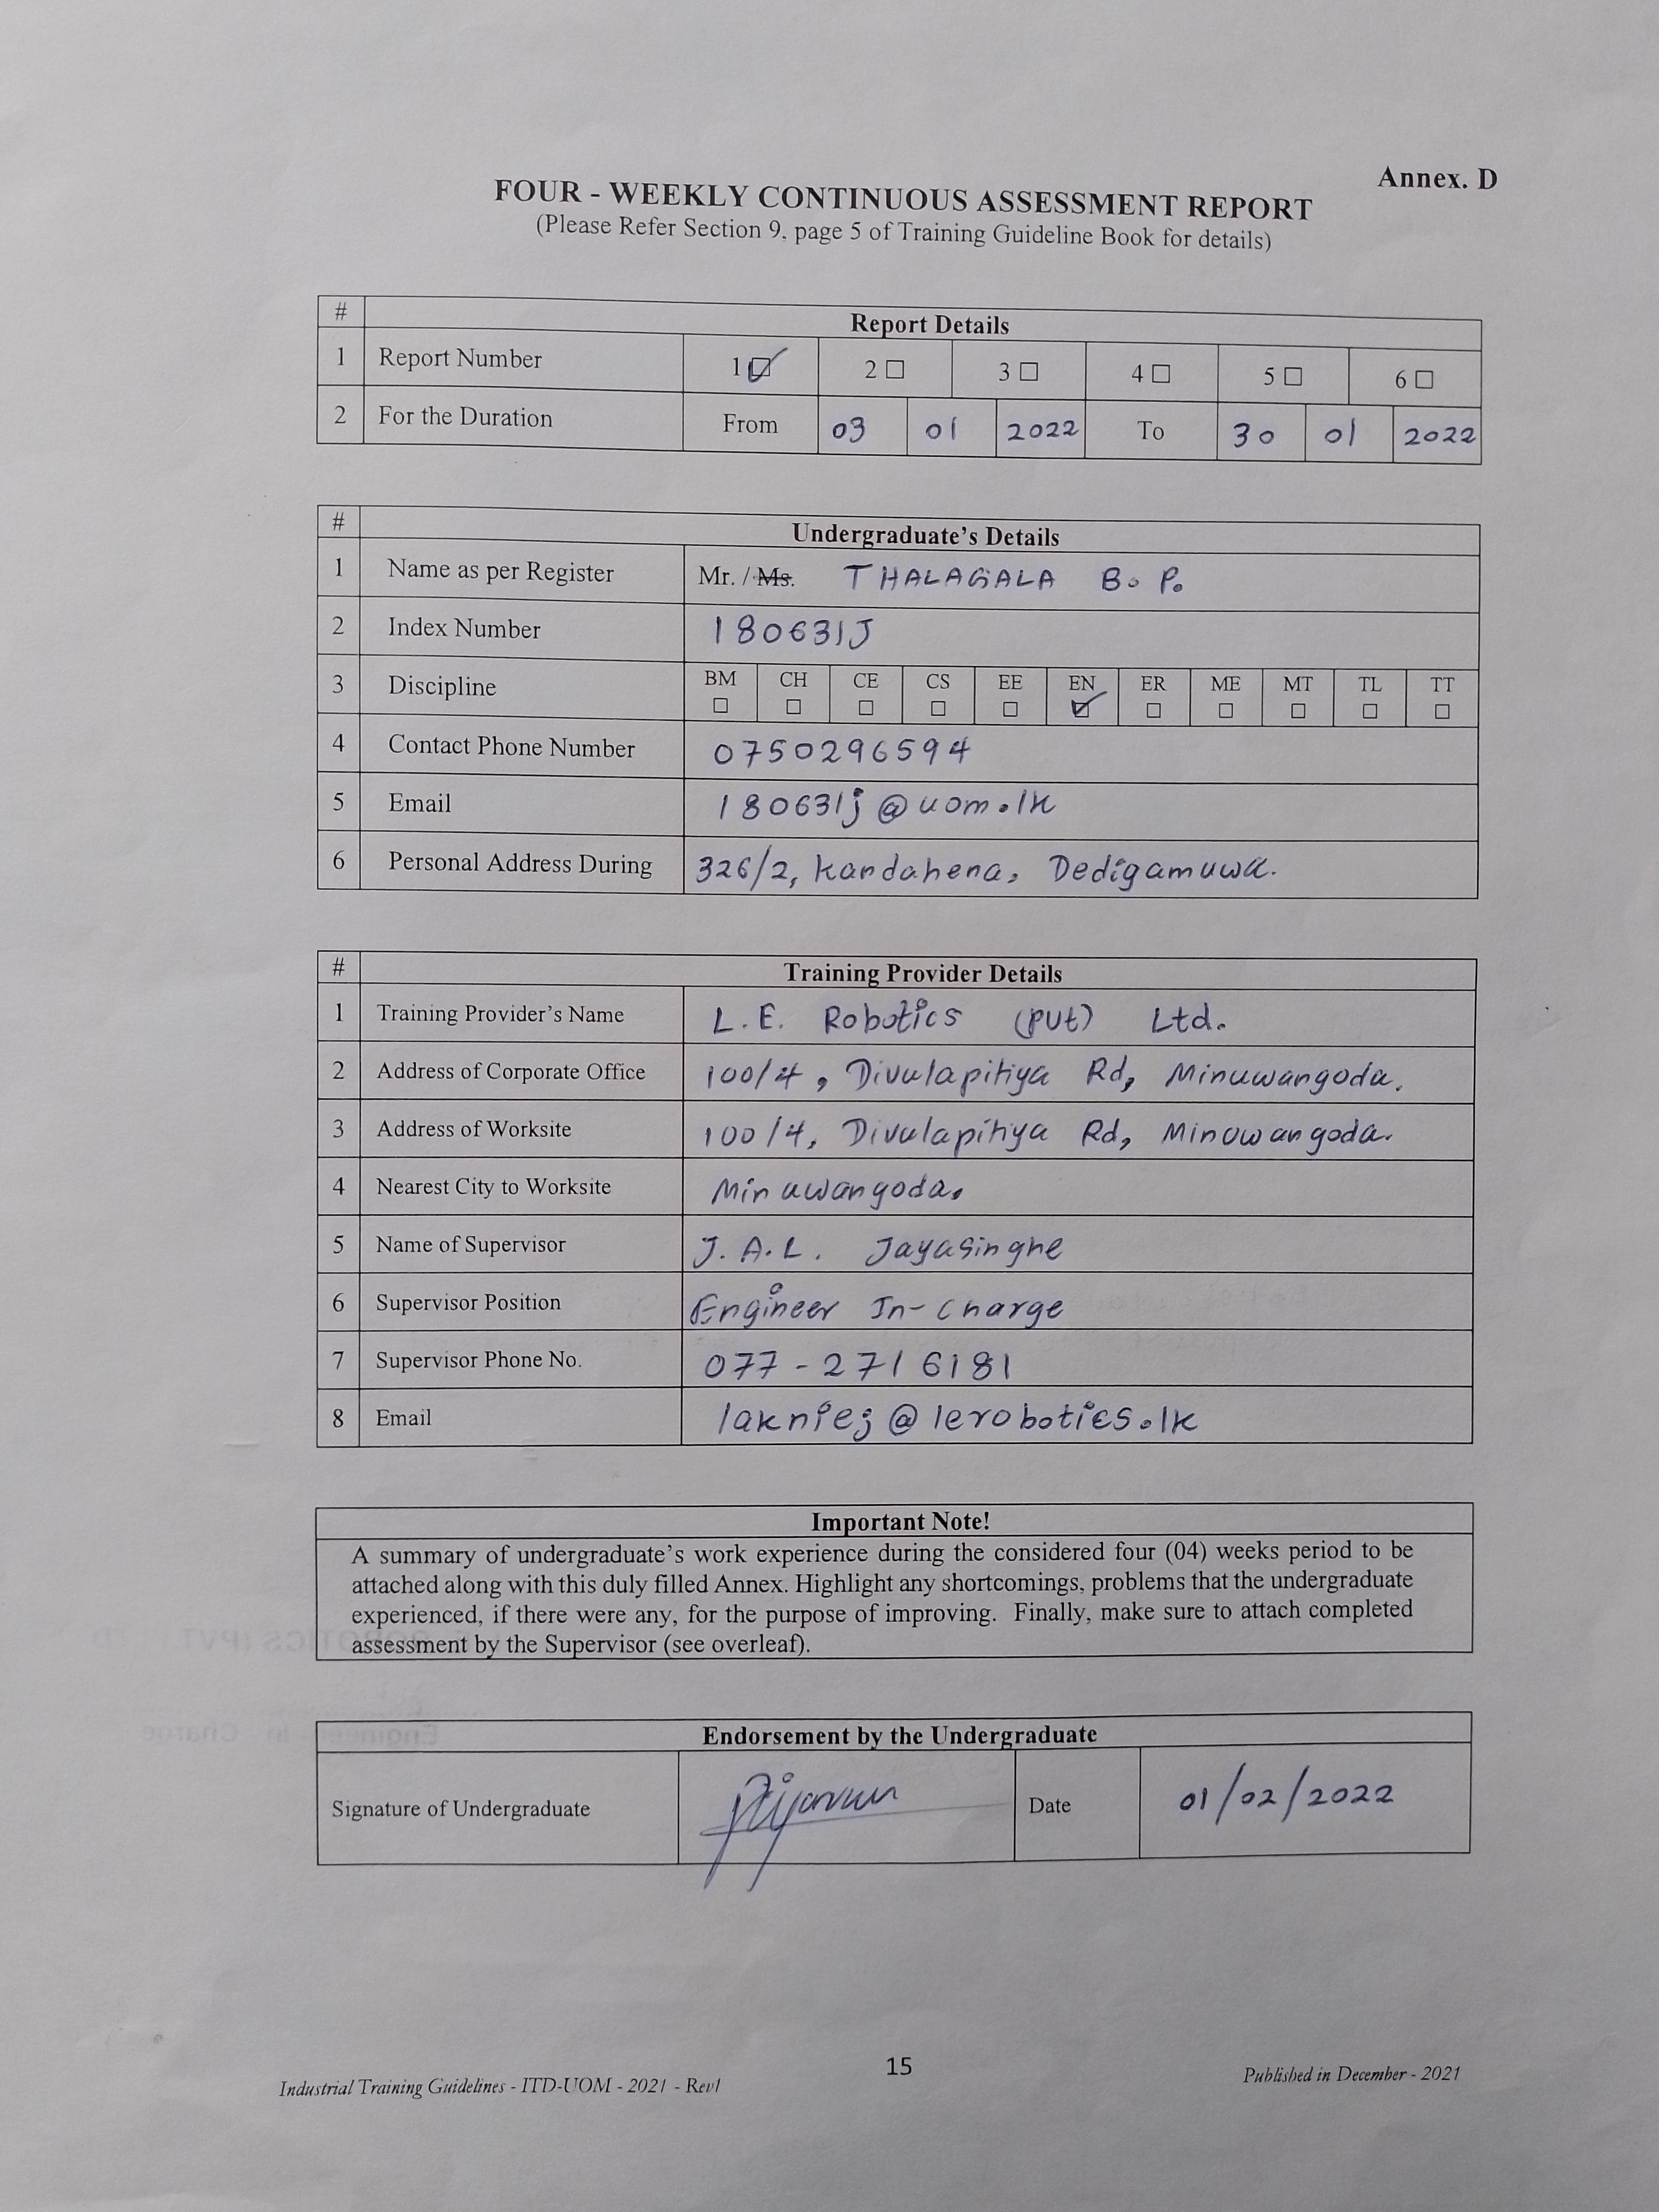 Annex. D
FOUR - WEEKLY CONTINUOUS ASSESSMENT REPORT
(Please Refer Section 9, page 5 of Training Guideline Book for details)
# Report Details
1 Report Number 1 ☑ 2 ☐ 3 ☐ 4 ☐ 5 ☐ 6 ☐
2 For the Duration From 03 01 2022 To 30 01 2022
# Undergraduate's Details
1 Name as per Register Mr. / Ms. THALAGALA B. P.
2 Index Number 180631J
3 Discipline BM ☐ CH ☐ CE ☐ CS ☐ EE ☐ EN ☑ ER ☐ ME ☐ MT ☐ TL ☐ TT ☐
4 Contact Phone Number 0750296594
5 Email 180631j@uom.lk
6 Personal Address During 326/2, Kandahena, Dedigamuwa.
# Training Provider Details
1 Training Provider's Name L.E. Robotics (Pvt) Ltd.
2 Address of Corporate Office 100/4, Divulapitiya Rd, Minuwangoda.
3 Address of Worksite 100/4, Divulapitiya Rd, Minuwangoda.
4 Nearest City to Worksite Minuwangoda.
5 Name of Supervisor J. A. L. Jayasinghe
6 Supervisor Position Engineer In-Charge
7 Supervisor Phone No. 077-2716181
8 Email lakniej@lerobotics.lk
Important Note!
A summary of undergraduate's work experience during the considered four (04) weeks period to be
attached along with this duly filled Annex. Highlight any shortcomings, problems that the undergraduate
experienced, if there were any, for the purpose of improving. Finally, make sure to attach completed
assessment by the Supervisor (see overleaf).
Endorsement by the Undergraduate
Signature of Undergraduate Date 01/02/2022
15
Industrial Training Guidelines - ITD-UOM - 2021 - Rev1 Published in December - 2021